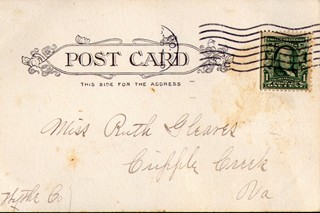 POST CARD
THIS SIDE FOR THE ADDRESS
Miss Ruth Gleaves
Cripple Creek
Va
Wythe Co